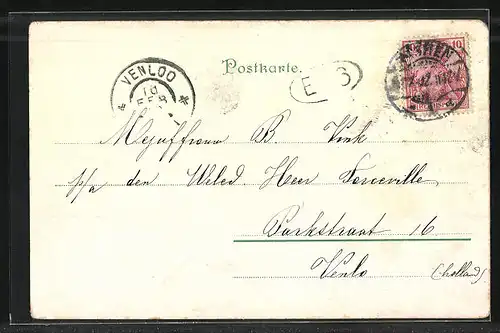 VENLOO
10
FEB
Postkarte.
E 3
10
Mejuffrouw B. Vink
p/a den Weled. Heer
Parkstraat 16
Venlo (holland)